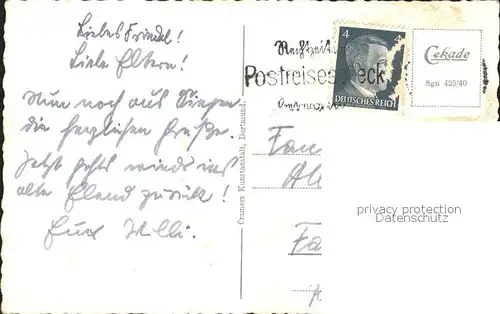 Liebes Friedel!
Liebe Eltern!
Nun noch aus Siegen
die herzlichen Grüße.
Jetzt gehts wieder ins
alte Elend zurück!
Euer Willi.
Cramers Kunstanstalt, Dortmund
Rechtzeitig
Postreisescheck
4 4
DEUTSCHES REICH
Cekade
Sgn 425/40
Fam
Al
Fa
privacy protection
Datenschutz